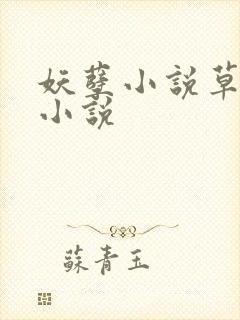 妖孽小說草
小說
蘇青玉